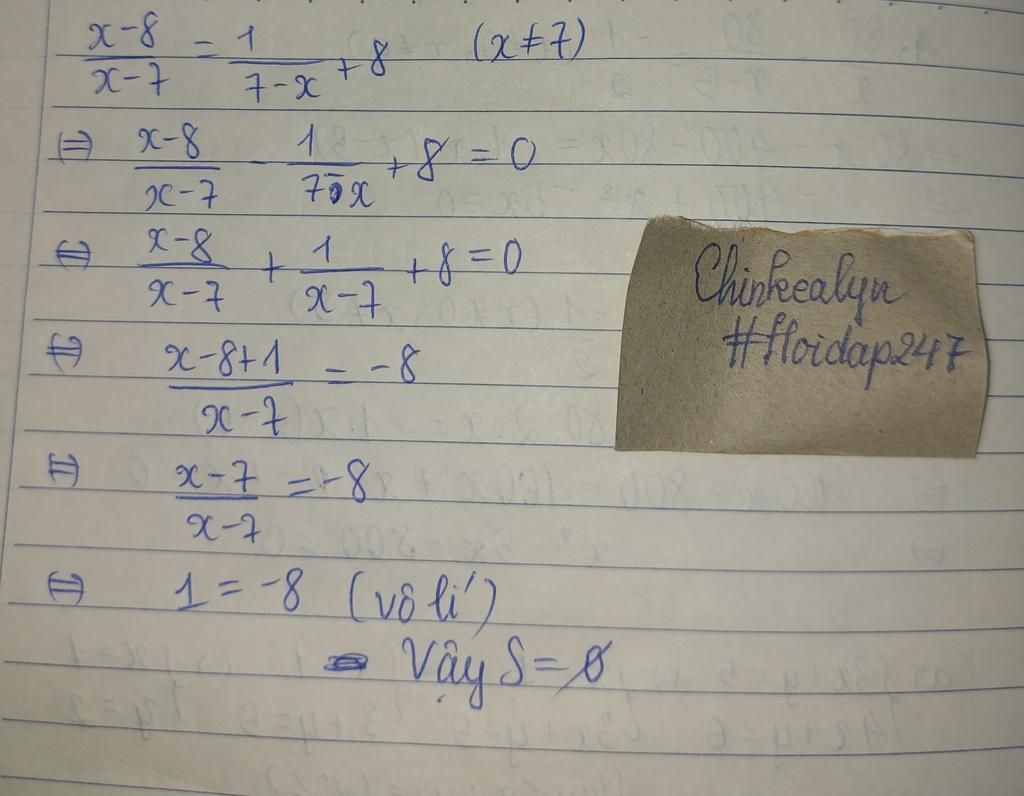 x-8/x-7 = 1/7-x + 8 (x≠7)
⇔ x-8/x-7 - 1/7-x + 8 = 0
⇔ x-8/x-7 + 1/x-7 + 8 = 0
⇔ x-8+1/x-7 = -8
⇔ x-7/x-7 = -8
⇔ 1 = -8 (vô lí)
Vậy S = ∅
Chinkealyn
#Hoidap247